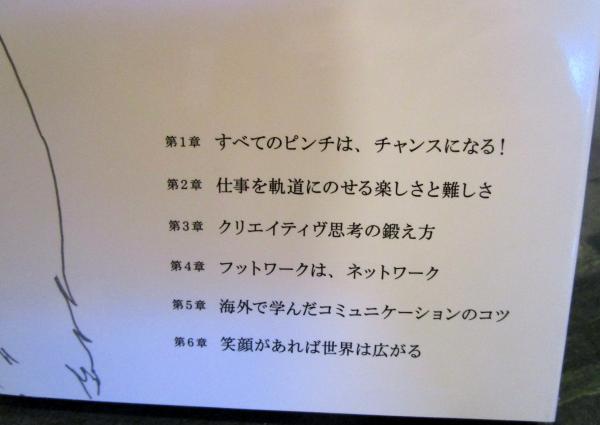 第1章 すべてのピンチは、チャンスになる!
第2章 仕事を軌道にのせる楽しさと難しさ
第3章 クリエイティヴ思考の鍛え方
第4章 フットワークは、ネットワーク
第5章 海外で学んだコミュニケーションのコツ
第6章 笑顔があれば世界は広がる